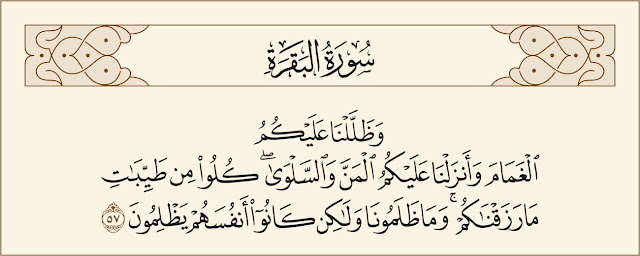 سُورَةُ البَقَرَةِ
وَظَلَّلْنَا عَلَيْكُمُ
ٱلْغَمَامَ وَأَنزَلْنَا عَلَيْكُمُ ٱلْمَنَّ وَٱلسَّلْوَىٰۖ كُلُوا۟ مِن طَيِّبَـٰتِ
مَا رَزَقْنَـٰكُمْۚ وَمَا ظَلَمُونَا وَلَـٰكِن كَانُوٓا۟ أَنفُسَهُمْ يَظْلِمُونَ ٥٧